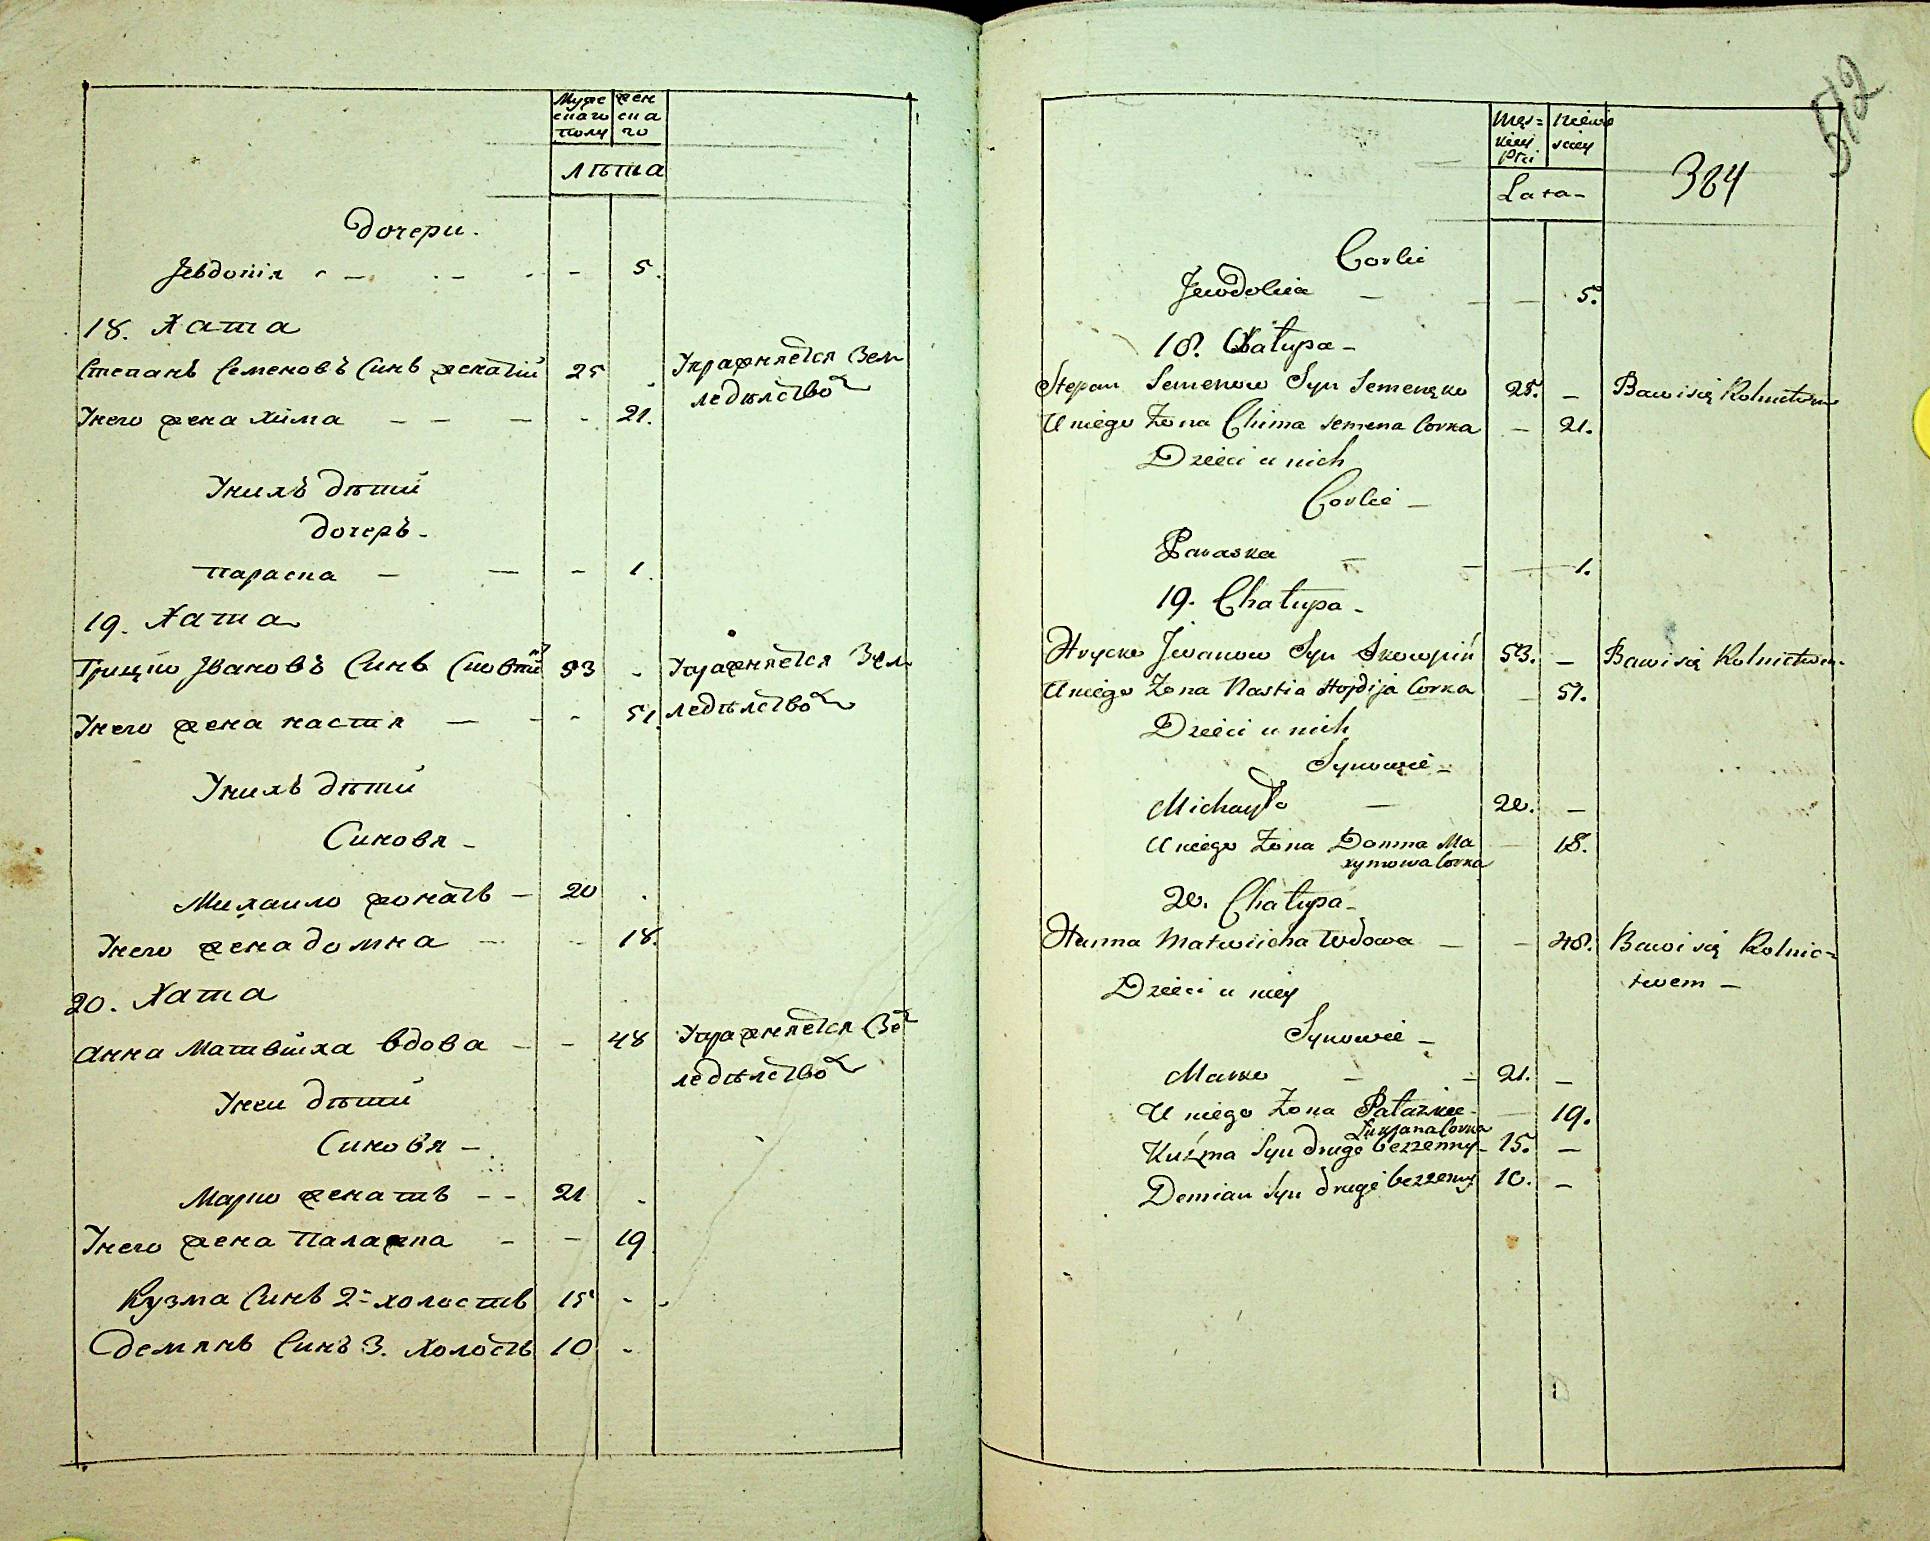 Муже
скаго
полу
жен
ска
го
лѣта
дочери.
Јевдокія - - - 5.
18. Хата
Степанъ Семеновъ Синъ женатій 25 - Упражняется Зем
ледѣлство
Унего жена Хима - - - - 21.
Унихъ дѣтій
дочеръ -
Параска - - - 1.
19. Хата
Грицко Јвановъ Синъ 53 - Упражняется Зем
ледѣлство
Унего жена настя - - - 51
Унихъ дѣтій
Синовя -
Михаило жонатъ - 20 -
Унего жена домна - - 18.
20. Хата
Анна Матвійха вдова - - 48 Упражняется Зе
ледѣлство
Унеи дѣтій
Синовя -
Марко женатъ - - 21 -
Унего жена Палажка - - 19
Кузма Синъ 2- холостъ 15 -
Демянъ Синъ 3. холостъ 10 -
512
Męs=
kiey
płci
niewe
sciey
Lata -
304
Corki
Jewdokia - - - 5.
18. Chałupa -
Stepan Semenow Syn 25. - Bawi się Rolnictwem
U niego Żona Chima Semena Corka - 21.
Dzieci u nich
Corki -
Paraska - - - 1.
19. Chałupa -
Hrycko Jwanow Syn 53. - Bawi się Rolnictwem
U niego Żona Nastia Hordija Corka - 51.
Dzieci u nich
Synowie -
Michayło - 20. -
U niego Żona Domna Ma
xymowa Corka - 18.
20. Chałupa -
Hanna Matwiicha Wdowa - - 48. Bawi się Rolnic=
twem -
Dzieci u niey
Synowie -
Marko - - 21. -
U niego Żona Palazka -
Łukjana Corka - 19.
Kuźma Syn drugi bezzenny - 15. -
Demian Syn drugi bezzenny 10. -